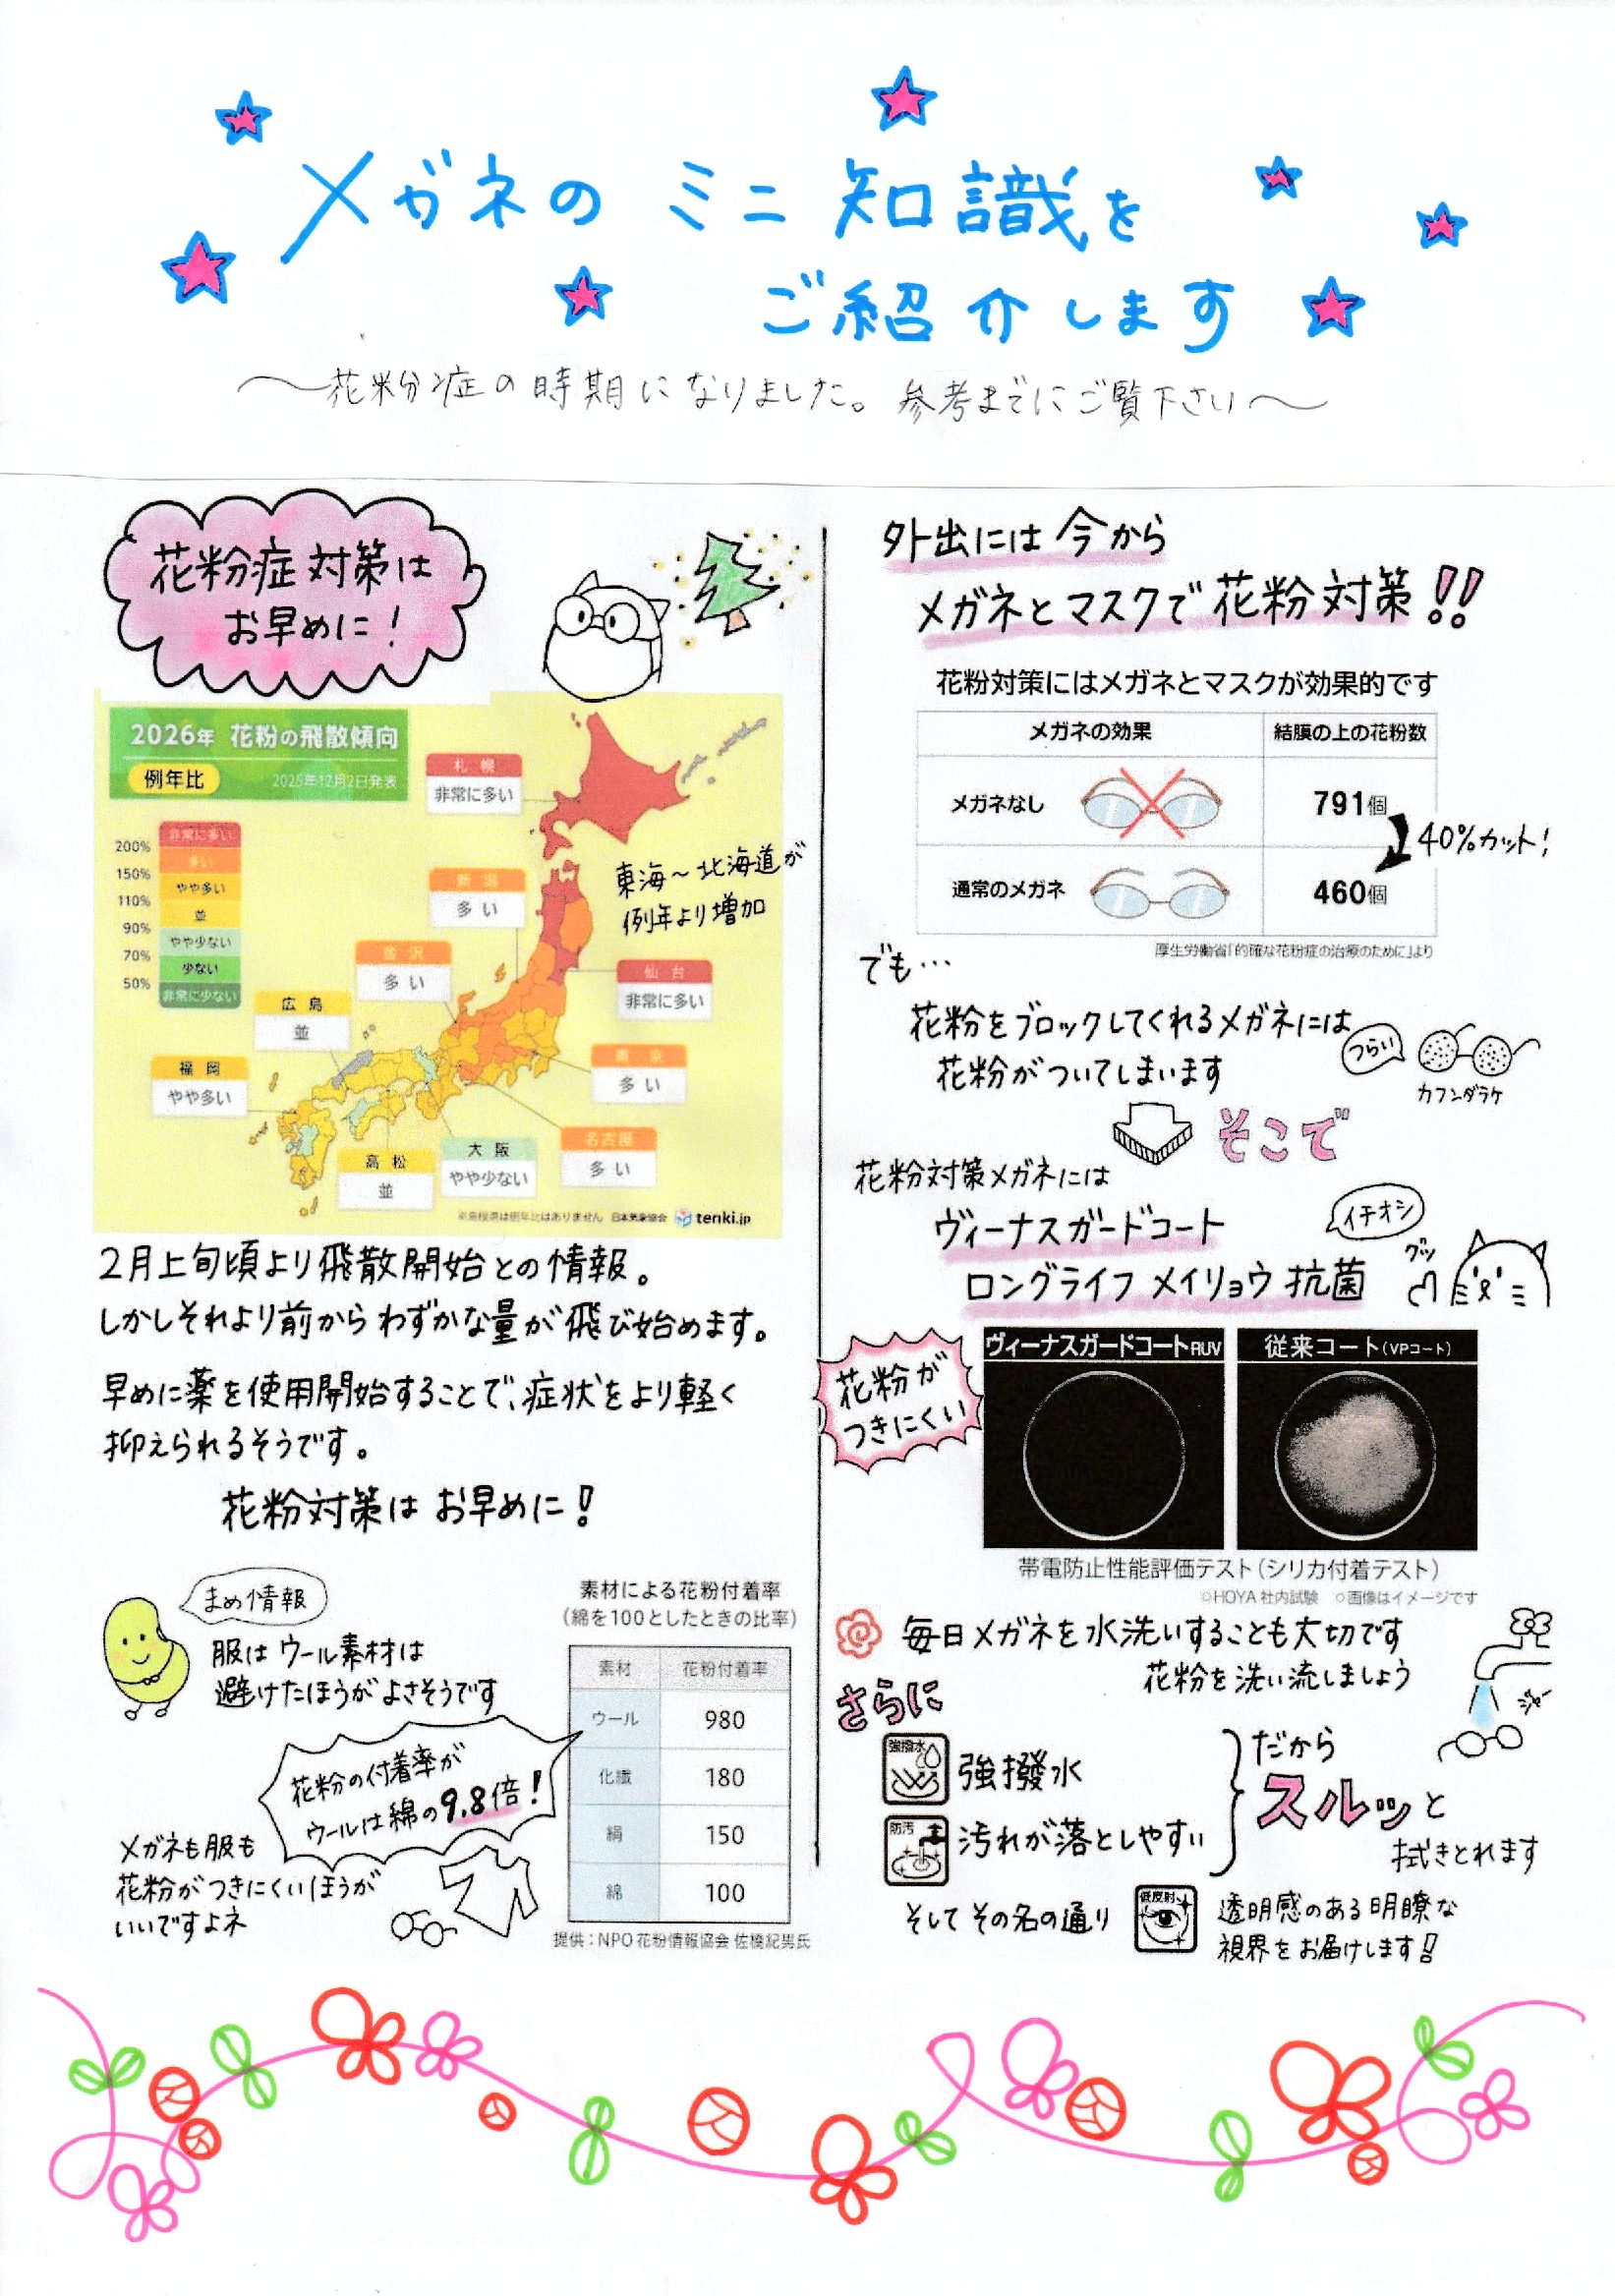 メガネの ミニ 知識を
ご紹介します
〜花粉症の時期になりました。参考までにご覧下さい〜
花粉症対策は
お早めに！
2026年 花粉の飛散傾向
例年比
2025年12月2日発表
200%
150%
110%
90%
70%
50%
非常に多い
多い
やや多い
並
やや少ない
少ない
非常に少ない
札幌
非常に多い
新潟
多い
東海〜北海道が
例年より増加
金沢
多い
仙台
非常に多い
広島
並
東京
多い
福岡
やや多い
名古屋
多い
大阪
やや少ない
高松
並
日本気象協会 tenki.jp
2月上旬頃より飛散開始との情報。
しかしそれより前からわずかな量が飛び始めます。
早めに薬を使用開始することで、症状をより軽く
抑えられるそうです。
花粉対策は お早めに！
まめ情報
服は ウール素材は
避けたほうがよさそうです
花粉の付着率が
ウールは綿の9.8倍！
メガネも服も
花粉がつきにくいほうが
いいですよネ
素材による花粉付着率
（綿を100としたときの比率）
素材 花粉付着率
ウール 980
化繊 180
絹 150
綿 100
提供：NPO花粉情報協会 佐橋紀男氏
外出には 今から
メガネとマスクで花粉対策!!
花粉対策にはメガネとマスクが効果的です
メガネの効果 結膜の上の花粉数
メガネなし 791個
40%カット！
通常のメガネ 460個
厚生労働省「的確な花粉症の治療のために」より
でも…
花粉をブロックしてくれるメガネには
花粉がついてしまいます
つらい
カフンダラケ
そこで
花粉対策メガネには
ヴィーナスガードコート
ロングライフ メイリョウ 抗菌
イチオシ
グッ
花粉が
つきにくい
ヴィーナスガードコートRUV
従来コート(VPコート)
帯電防止性能評価テスト（シリカ付着テスト）
○HOYA社内試験 ○画像はイメージです
毎日メガネを水洗いすることも大切です
花粉を洗い流しましょう
ジャー
さらに
強撥水
強撥水
防汚
汚れが落としやすい
だから
スルッと
拭きとれます
そして その名の通り
低反射
透明感のある明瞭な
視界をお届けします!!